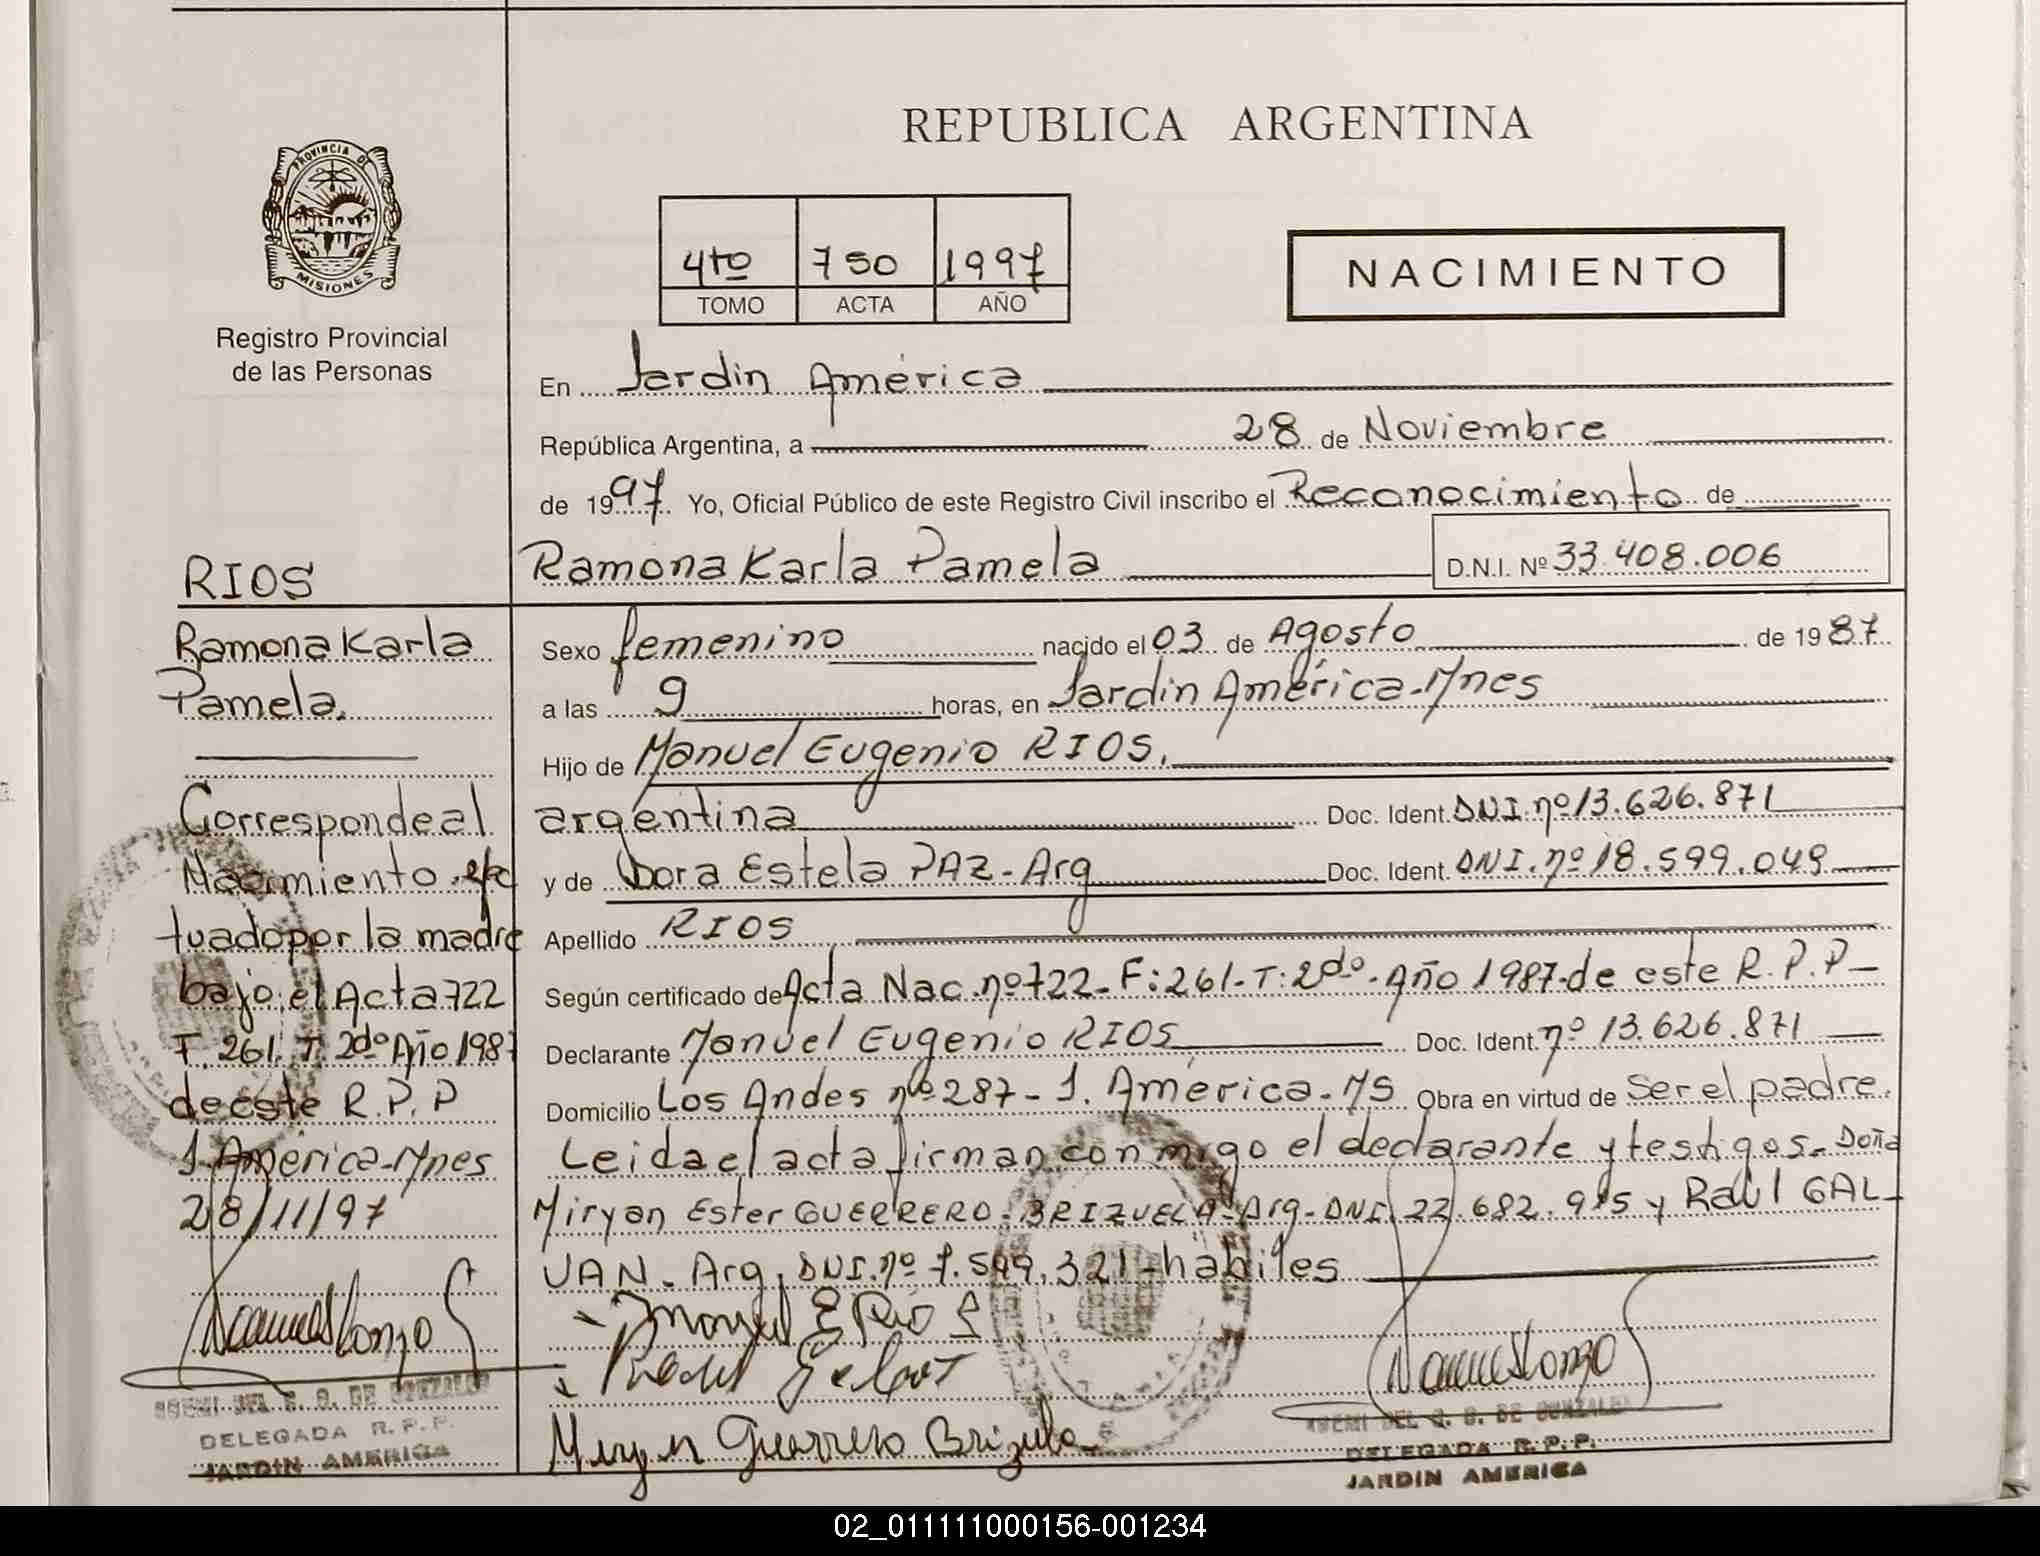 REPUBLICA ARGENTINA
PROVINCIA DE
MISIONES
Registro Provincial
de las Personas
4to 750 1997
TOMO ACTA AÑO
NACIMIENTO
En Jardin América
República Argentina, a 28 de Noviembre
de 1997 Yo, Oficial Público de este Registro Civil inscribo el Reconocimiento de
Ramona Karla Pamela D.N.I. Nº 33.408.006
Sexo femenino nacido el 03 de Agosto de 1987
a las 9 horas, en Jardin América-Mnes
Hijo de Manuel Eugenio RIOS.
argentina Doc. Ident. DNI.nº 13.626.871
y de Dora Estela PAZ-Arg Doc. Ident. DNI.nº 18.599.049
Apellido RIOS
Según certificado de Acta Nac.nº 722-F:261-T:2do-Año 1987-de este R.P.P-
Declarante Manuel Eugenio RIOS Doc. Ident. nº 13.626.871
Domicilio Los Andes nº 287-J. América-MS Obra en virtud de ser el padre.
Leida el acta firman conmigo el declarante y testigos- Doña
Miryan Ester GUERRERO-BRIZUELA-Arg-DNI.22.682.915 y Raúl GAL-
VAN-Arg.DNI.nº 7.599.321-hábiles
Miryan Guerrero Brizuela
DE GONZALEZ
DELEGADA R.P.P.
JARDIN AMERICA
RIOS
Ramona Karla
Pamela.
Corresponde al
Nacimiento efec
tuado por la madre
bajo el Acta 722
F.261. T.2do Año 1987
de este R.P.P
J. América-Mnes
28/11/97
DE GONZALEZ
DELEGADA R.P.P.
JARDIN AMERICA
02_011111000156-001234